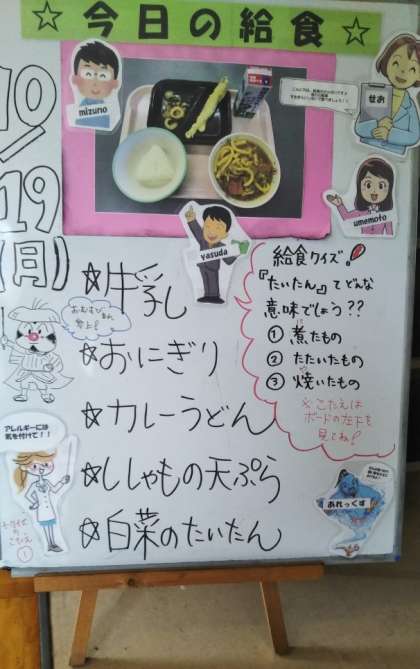 ☆今日の給食☆
10/19(月)
mizuno
せお
umemoto
yasuda
☆牛乳
☆おにぎり
☆カレーうどん
☆ししゃもの天ぷら
☆白菜のたいたん
給食クイズ!
『たいたん』てどんな
意味でしょう??
① 煮たもの
② たたいたもの
③ 焼いたもの
※こたえは
ボードの左下を
見てね!
おむすびまん
参上!
アレルギーには
気を付けて!!
クイズの
こたえ
①
あれっくす